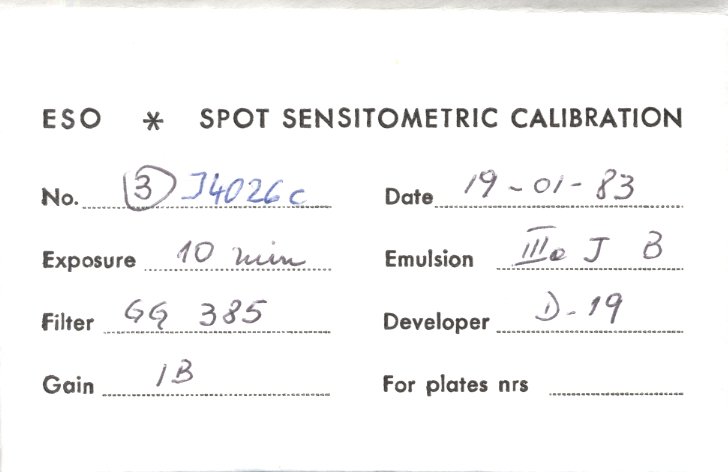 ESO * SPOT SENSITOMETRIC CALIBRATION
No. 3 J4026c Date 19-01-83
Exposure 10 min Emulsion IIIa J B
Filter GG 385 Developer D-19
Gain 1B For plates nrs